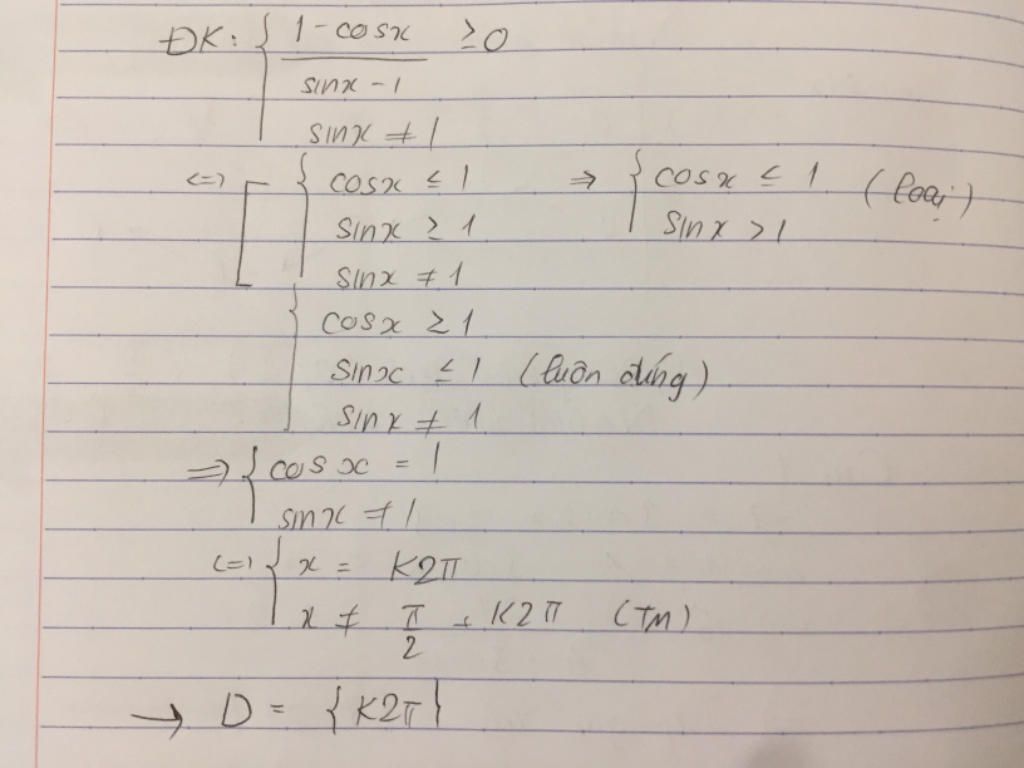 ĐK: { (1 - cosx)/(sinx - 1) ≥ 0
sinx ≠ 1
<=> [ { cosx ≤ 1 => { cosx ≤ 1 (loại)
sinx ≥ 1 sinx > 1
sinx ≠ 1
{ cosx ≥ 1
sinx ≤ 1 (luôn đúng)
sinx ≠ 1
=> { cosx = 1
sinx ≠ 1
<=> { x = K2π
x ≠ π/2 + K2π (TM)
→ D = {K2π}